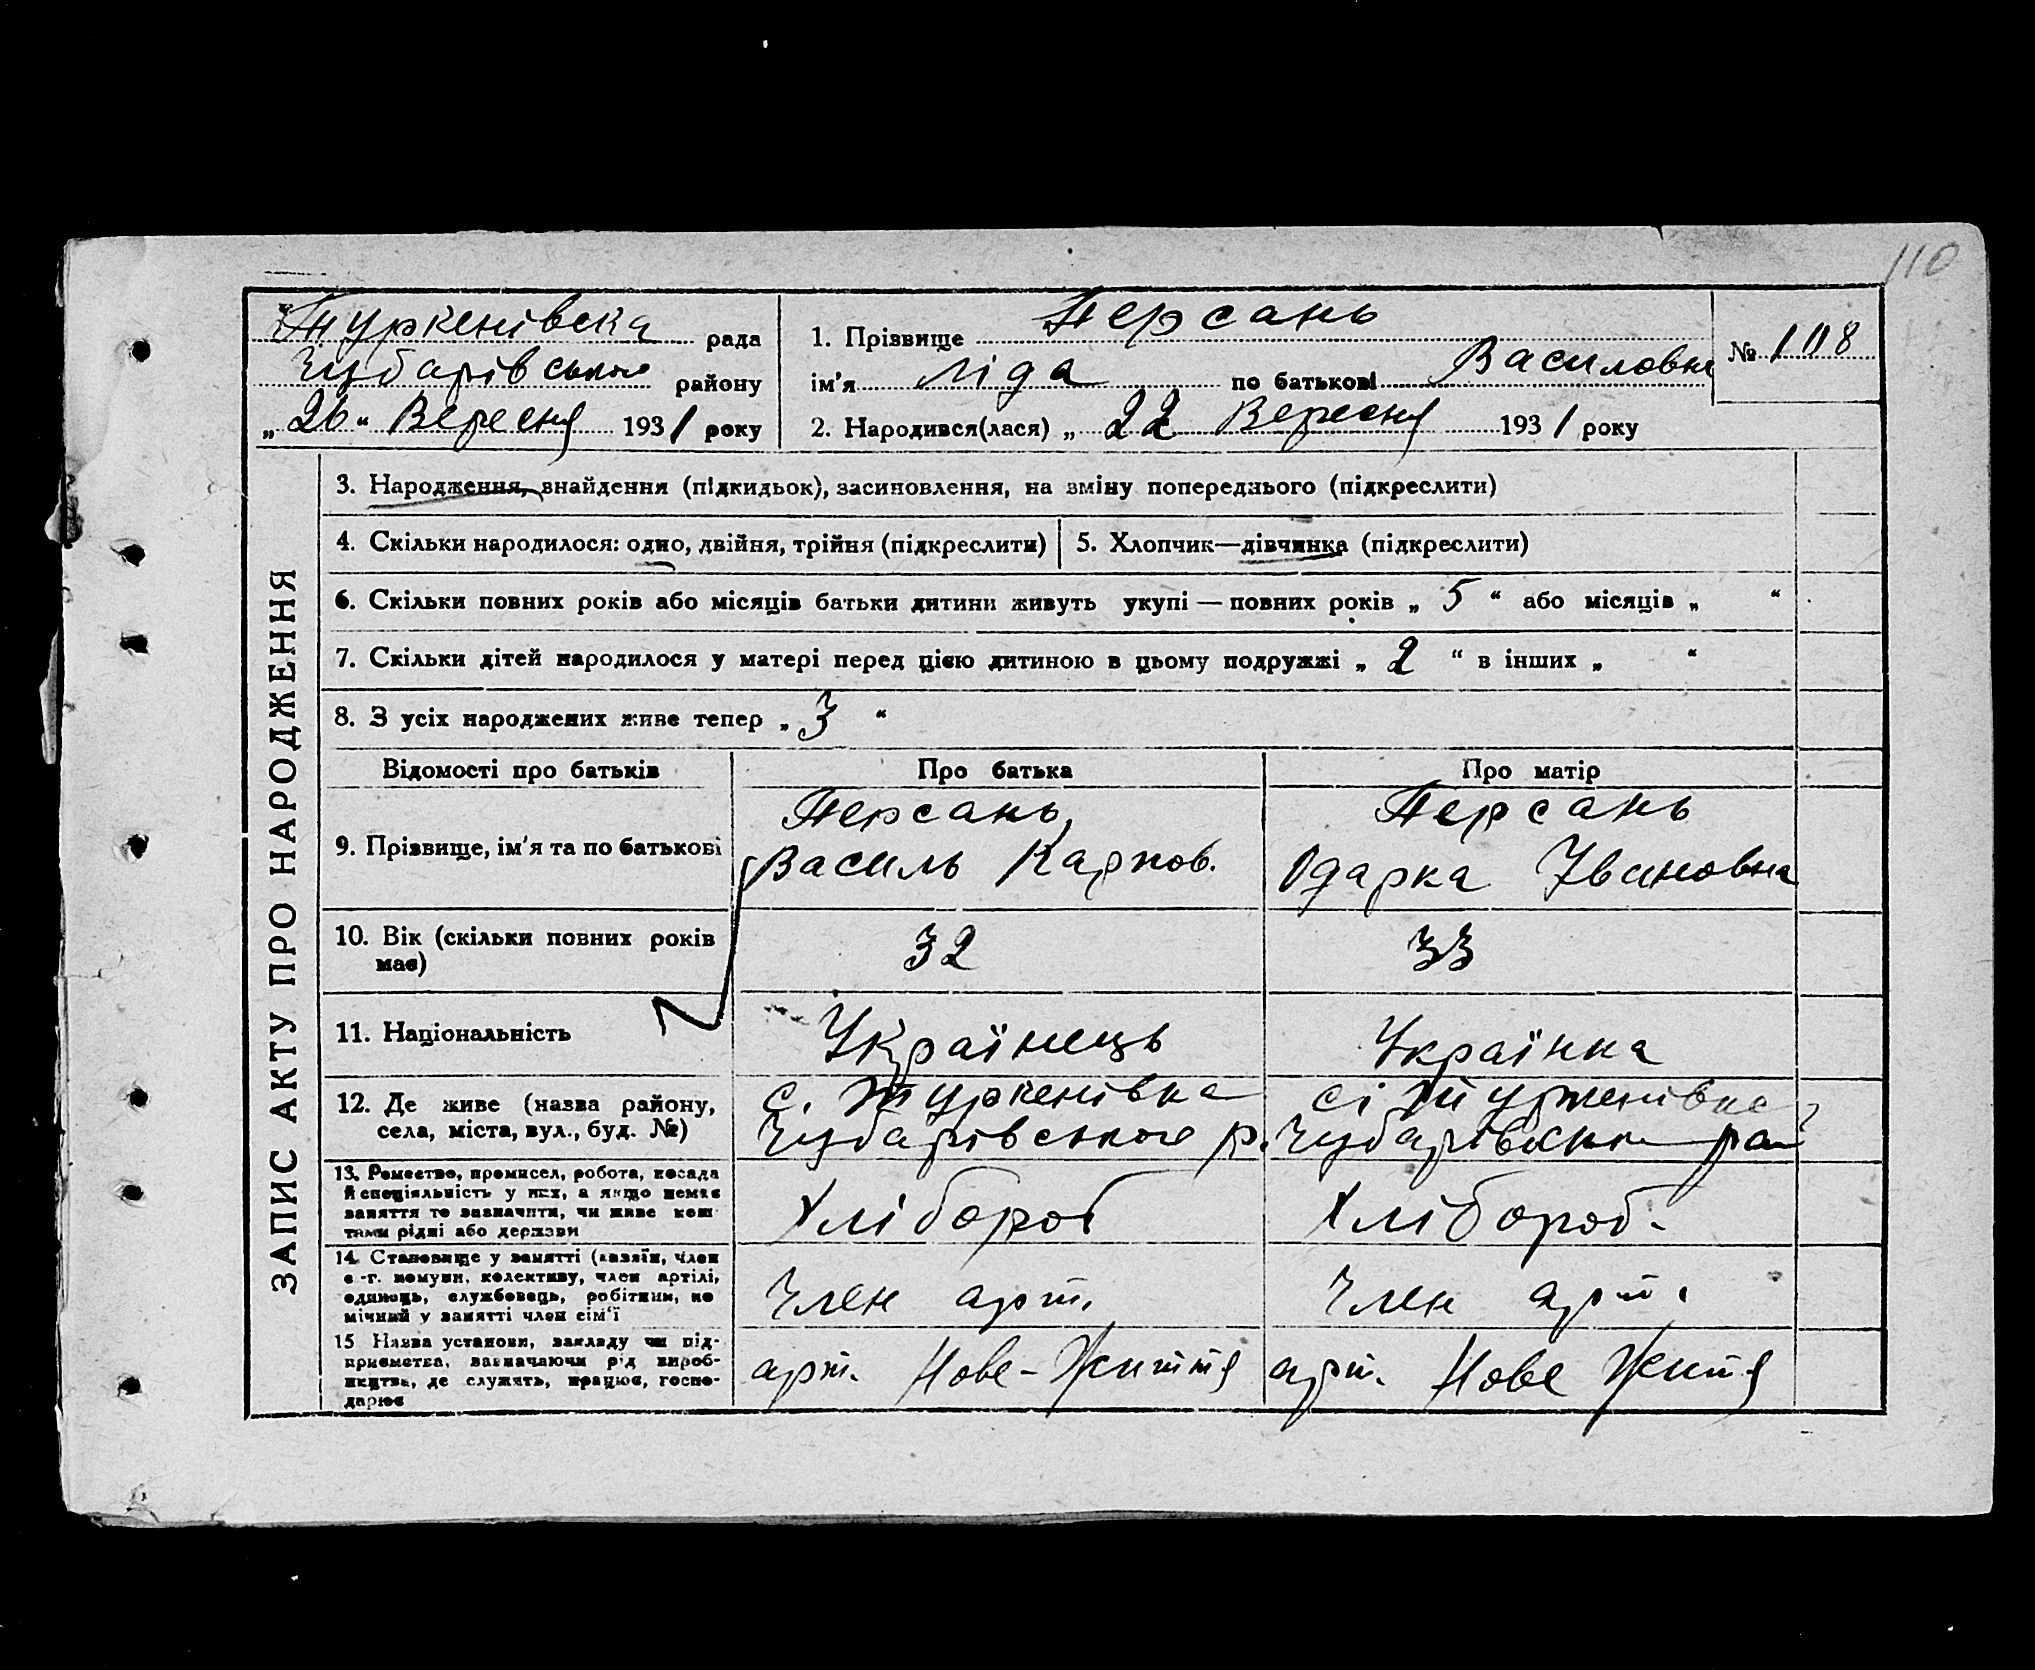 110
Туркенівска рада
Чубарівського району
„26“ Вересня 1931 року
1. Прізвище Персань
ім'я Ліда по батькові Василовна
2. Народився(лася) „22 Вересня 1931 року
№ 108
ЗАПИС АКТУ ПРО НАРОДЖЕННЯ
3. Народження, знайдення (підкидьок), засиновлення, на зміну попереднього (підкреслити)
4. Скільки народилося: одно, двійня, трійня (підкреслити)
5. Хлопчик—дівчинка (підкреслити)
6. Скільки повних років або місяців батьки дитини живуть укупі — повних років „ 5 “ або місяців „ “
7. Скільки дітей народилося у матері перед цією дитиною в цьому подружжі „ 2 “ в інших „ “
8. З усіх народжених живе тепер „ 3 “
Відомості про батьків
Про батька
Про матір
9. Прізвище, ім'я та по батькові
Персань
Василь Карпов.
Персань
Одарка Івановна
10. Вік (скільки повних років
має)
32
33
11. Національність
Українець
Українка
12. Де живе (назва району,
села, міста, вул., буд. №)
с. Туркенівка
Чубарівського р.
с. Туркенівка
Чубарівськ рай
13. Ремество, промисел, робота, посада
й спеціяльність у них, а якщо немає
заняття то зазначити, чи живе кош
тами рідні або держави
Хлібороб
Хлібороб.
14. Становище у занятті (хазяїн, член
с.-г. комуни, колективу, член артілі,
одинець, службовець, робітник, по
мічний у занятті член сім'ї
Член арт.
Член арт.
15 Назва установи, закладу чи під-
приємства, зазначаючи рід вироб-
ництва, де служить, працює, госпо-
дарює
арт. Нове-Життя
арт. Нове Житя